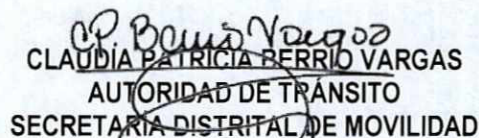 CP Berrio Vargas
CLAUDIA PATRICIA BERRIO VARGAS
AUTORIDAD DE TRÁNSITO
SECRETARIA DISTRITAL DE MOVILIDAD